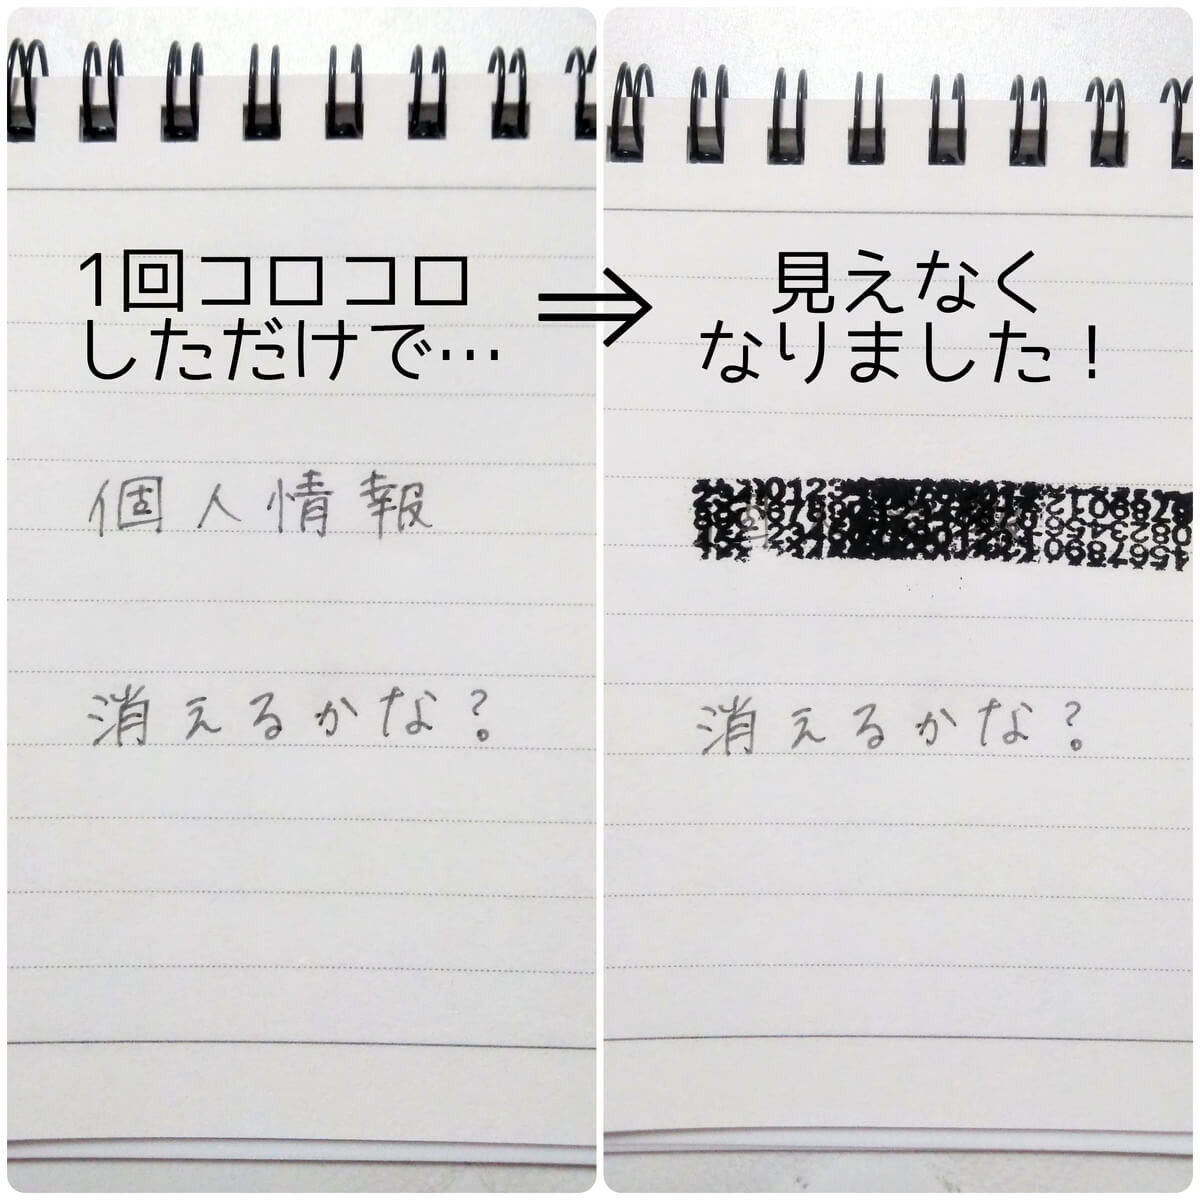 1回コロコロ
しただけで…
⇒
見えなく
なりました！
個人情報
消えるかな？
消えるかな？